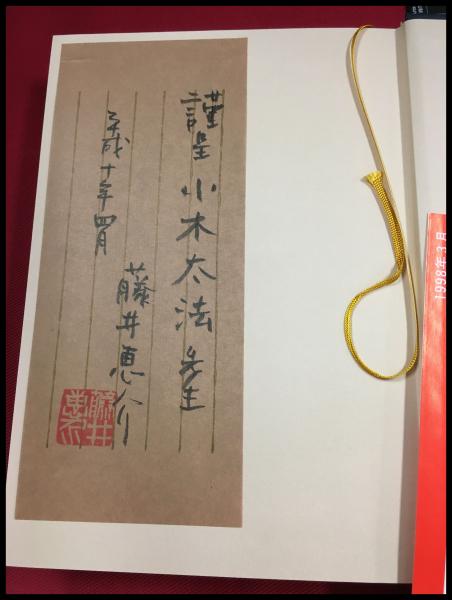 謹呈 小木太法先生
平成十年四月
藤井恵介
藤井
恵介
1998年3月